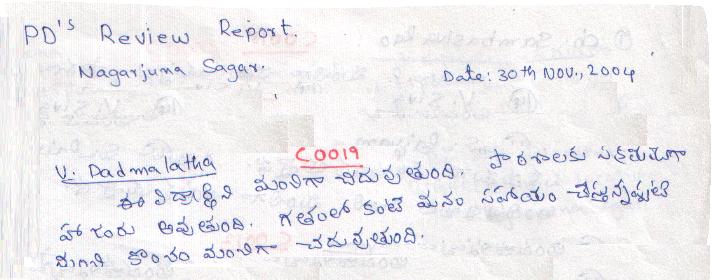 PD's Review Report.
Nagarjuna Sagar.
Date: 30th NOV., 2004
V. Padmalatha C0019
ఈ విద్యార్థిని మంచిగా చదువుతుంది. పాఠశాలకు సక్రమముగా
హాజరు అవుతుంది. గతంలో కంటే మనం సహాయం చేస్తున్నప్పటి
నుంచి కొంచం మంచిగా చదువుతుంది.